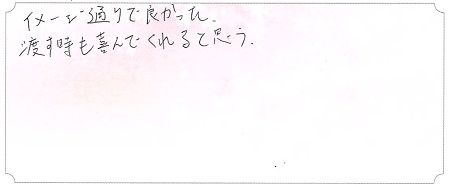 イメージ通りで良かった.
渡す時も喜んでくれると思う.